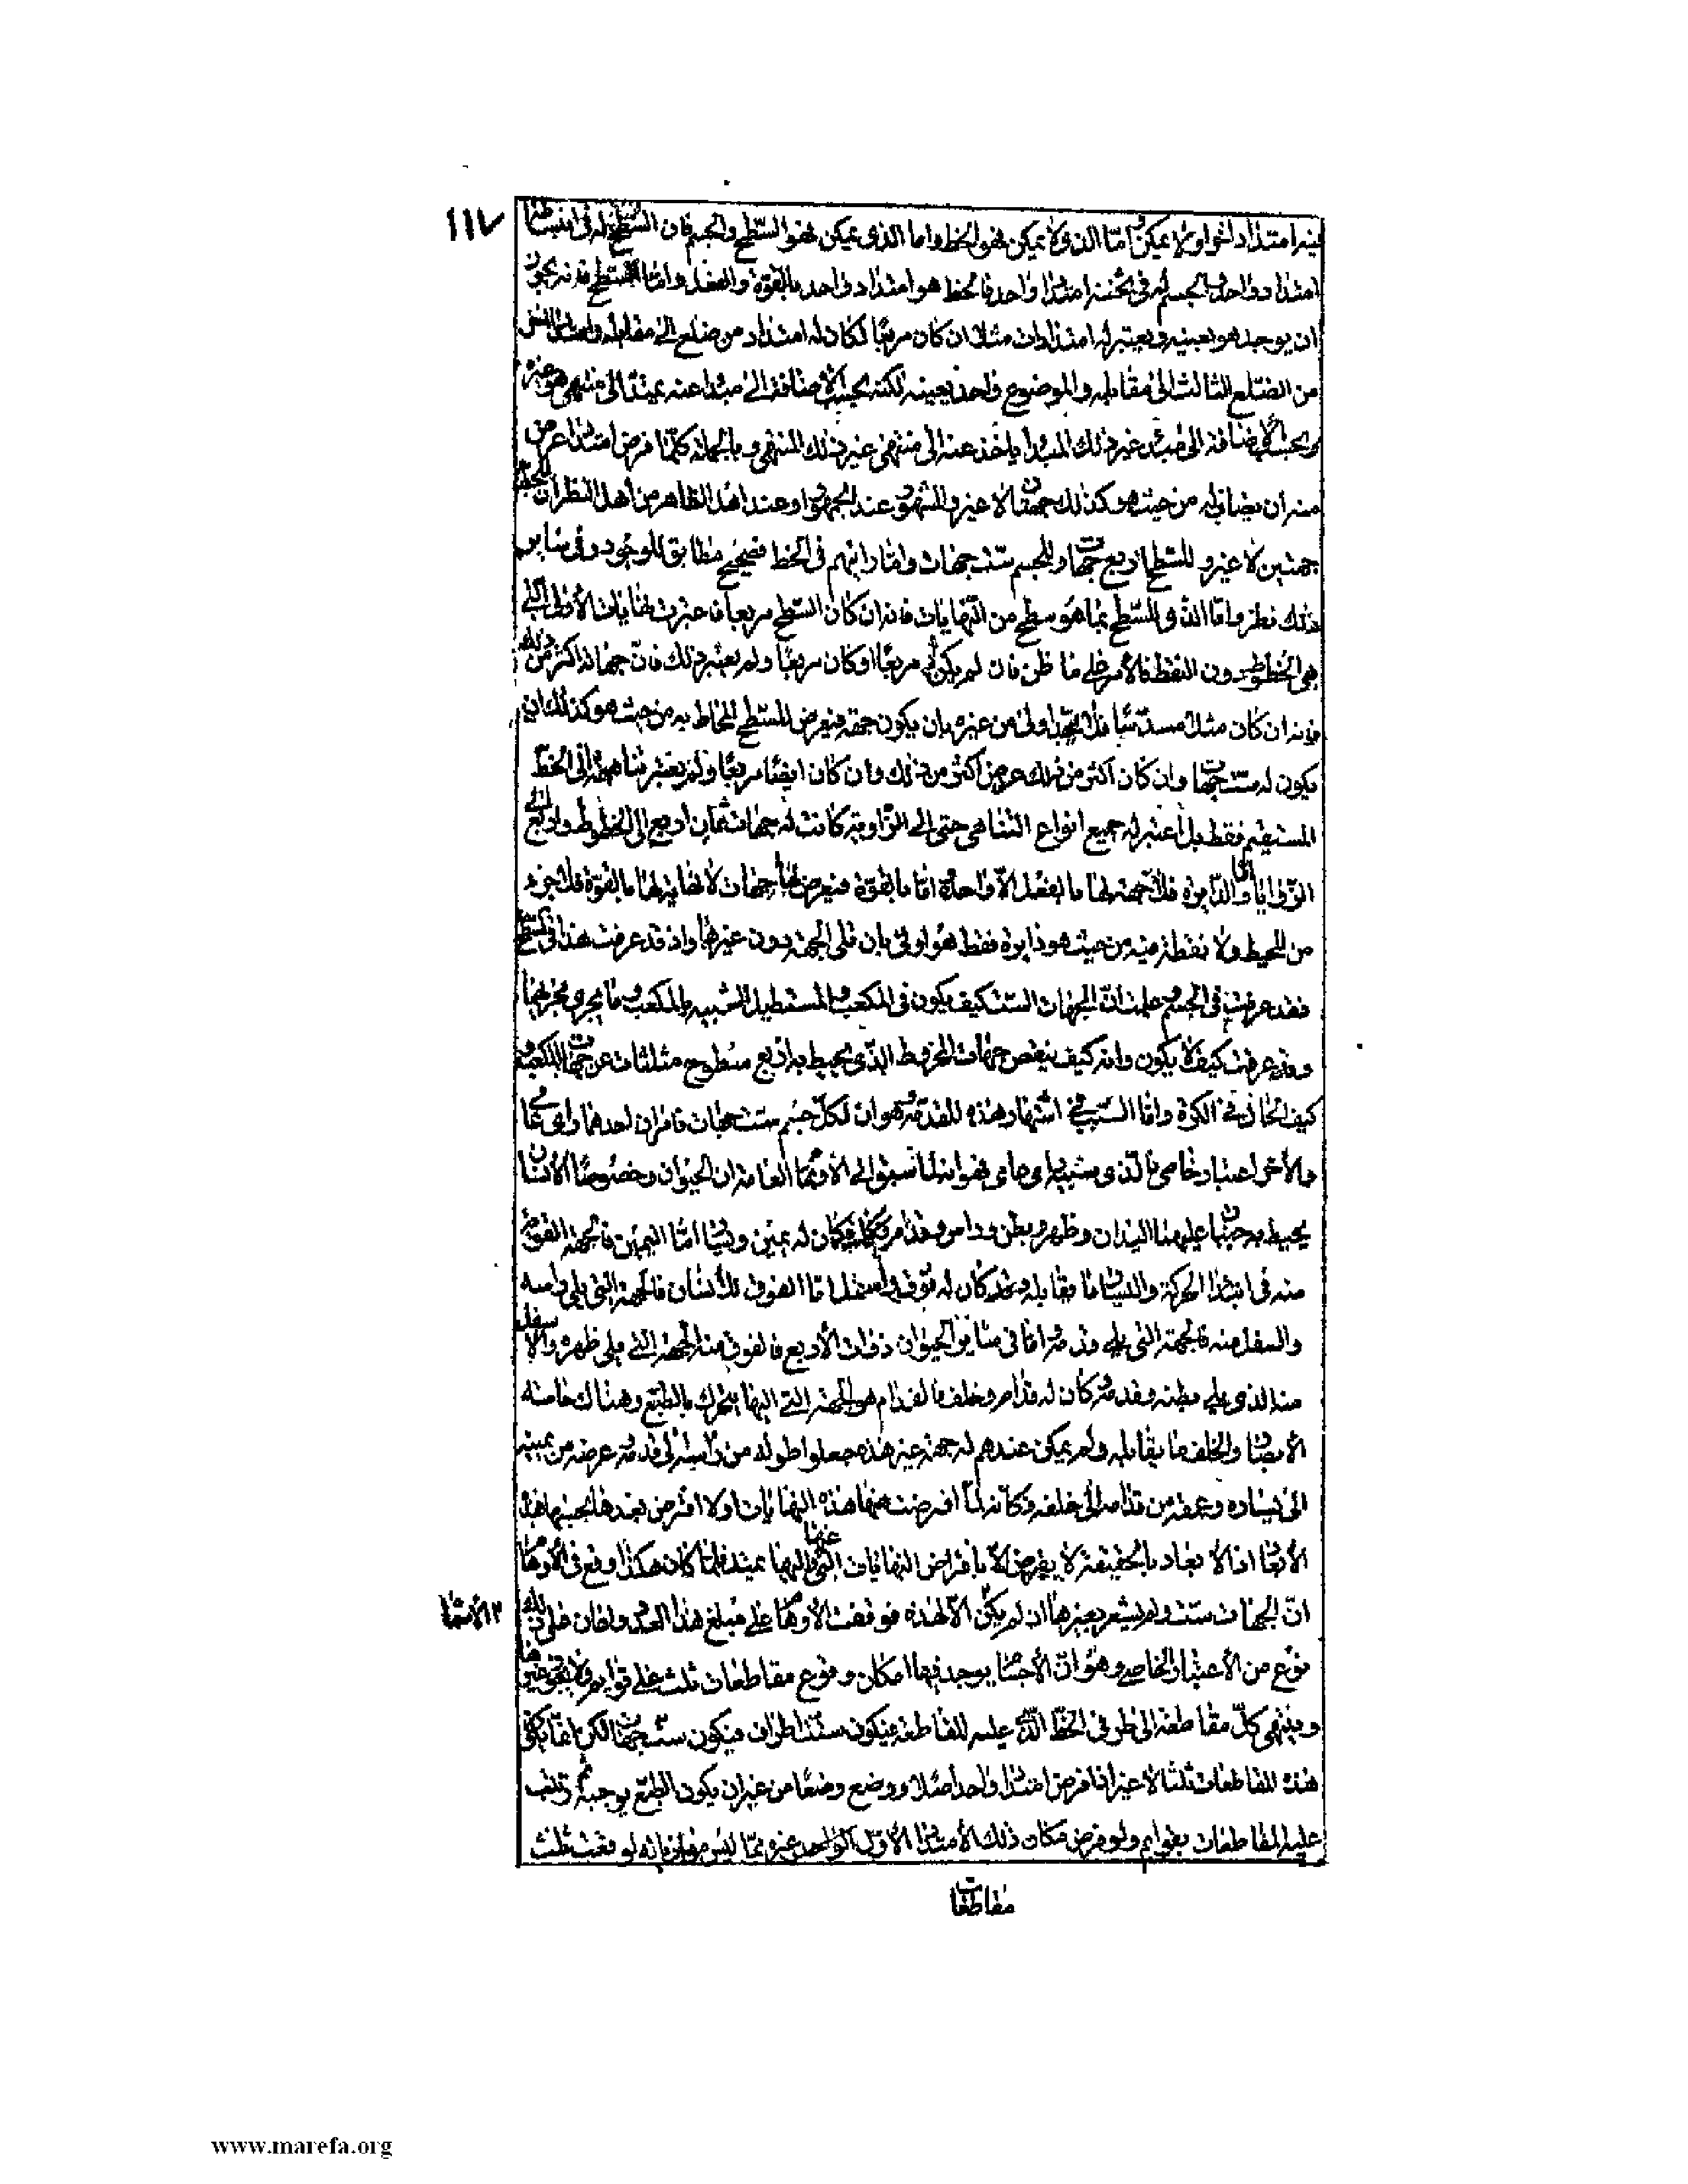 ١١٧
فيه امتداد اخر او لا يمكن امّا الذى لا يمكن فهو الخط واما الذى يمكن فهو السّطح والجسم فان السّطح له فى انبساطه
امتداد واحد والجسم له فى ثخنه امتداد واحد فالخط هو امتداد واحد بالقوّة والفعل وامّا السّطح فانه يجوز
ان يوجد هو بعينه و يعتبر له امتدادات مثلا ان كان مربّعا لكان له امتداد من ضلع الى مقابله وامتداد
من الضّلع الثالث الى مقابله والموضوع واحد بعينه لكنه بحسب الاضافة الى مبدا عنه يمتد الى منتهى هو غيره
وبحسب الاضافة الى مبدا غير ذلك المبدأ ياخذ عنه الى منتهى غير ذلك المنتهى و بالجملة كلّما فرض امتداد عرض
منه ان يضاف له من حيث هو كذلك جهتان لا غير والمشهور عند الجمهور او عند اهل الظاهر من اهل النظر ان للخط
جهتين لا غير و للسّطح اربع جهات وللجسم ستّ جهات وامّا رايهم فى الخط فصحيح مطابق للوجود وفى ساير
ذلك نظر وامّا الذى للسّطح بما هو سطح من النّهايات فانه ان كان السّطح مربعا فاعتبرت نهايات الاولى التى
هى الخطوط دون النقط فالامر على ما ظن فان لم يكن مربّعا او كان مربعًا ولم يعتبر ذلك فانّ جهاته اكثر من ذلك
فانه ان كان مثلا مسدّسًا فلا اولى من غيره بان يكون جهة فيعرض للسّطح المحاط به من حيث هو كذلك ان
يكون له ستّ جهات وان كان اكثر من ذلك عرض اكثر من ذلك وان كان ايضًا مربعًا ولم يعتبر تناهيه الى الخط
المستقيم فقط بل اعتبر له جميع انواع التناهى حتى الى الزّاوية كانت له جهات ثمان اربع الى الخطوط واربع الى
الزّوايا وامّا الدّايرة فلا جهة لها بالفعل الّا واحدة امّا بالقوّة فيعرض لها جهات لا نهاية لها بالقوّة فلا جزء
من المحيط ولا نقطة فيه من حيث هو دايرة فقط هو اولى بان يلى الجهة دون غيرها واذ قد عرفت هذا فى السّطح
فقد عرفت فى الجسم و علمت انّ الجهات الستّ كيف يكون فى المكعب والمستطيل الشبيه بالمكعب وما يجرى مجريهما
وقد عرفت كيف لا يكون وانه كيف ينقص جهات المخروط الذّى يحيط به اربع سطوح مثلثات عن جهات المكعب و
كيف الحال فى الكرة وامّا السّبب فى اشتهار هذه المقدّمة وهو ان لكلّ جسم ستّ جهات فامران احدهما راى عامى
والاخر اعتبار خاصى فالذى سببه راى عامى فهو انه لما سبق الى الاوهام العامة ان الحيوان وخصوصًا الانسان
يحيط به جنبان عليهما اليدان وظهر وبطن وراس وقدم فكان له يمين ويسار امّا اليمين فالجهة القويّة
منه فى ابتداء الحركة واليسار ما يقابله وكان له فوق واسفل امّا الفوق للانسان فالجهة التى يلى راسه
والسفل منه فالجهة التى يلى قدمه امّا فى ساير الحيوان ذوات الاربع فالفوق منه الجهة التى يلى ظهره والاسفل
منه الذى يلى بطنه و كان له قدّام وخلف فالقدّام هو الجهة التى اليها يتحرك بالطبع وهناك حاسة
الابصار والخلف ما يقابله ولم يكن عندهم له جهة غير هذه جعلوا طوله من راسه الى قدمه عرضه من يمينه
الى يساره وعمقه من قدّامه الى خلفه وكانه لمّا افرضت هذه النهايات اولا افرض بعدها بحسبها هذه
الابعاد اذ الابعاد بالحقيقة لا يفرض الّا بافراض النهايات التى عنها واليها يمتد فلمّا كان هكذا وقع فى الاوهام
انّ الجهات ستّ ولم يشعر بغيرها اذ لم يكن الّا لهذه فوقفت الاوهام على مبلغ هذا العدد واعان على ذلك
الاجسام
نوع من الاعتبار الخاصى وهو انّ الاجسام يوجد فيها امكان وقوع مقاطعات ثلث على قوايم ولا يقع غيرها
وينتهى كلّ مقاطعة الى طرفى الخط الذى عليه المقاطعة فيكون ستة اطراف فيكون ستّ جهات لكن انّما يكون
هذه المقاطعات ثلثا لا غير اذا فرض امتداد واحد اصلا ووضع وضعًا من غير ان يكون الطبع يوجبه ثم رتّب
عليه المقاطعات بقوايم ولو فرض مكان ذلك الامتداد الاوّل الواحد غيره ممّا ليس موازيا له لوقعت ثلث
مقاطعات
www.marefa.org